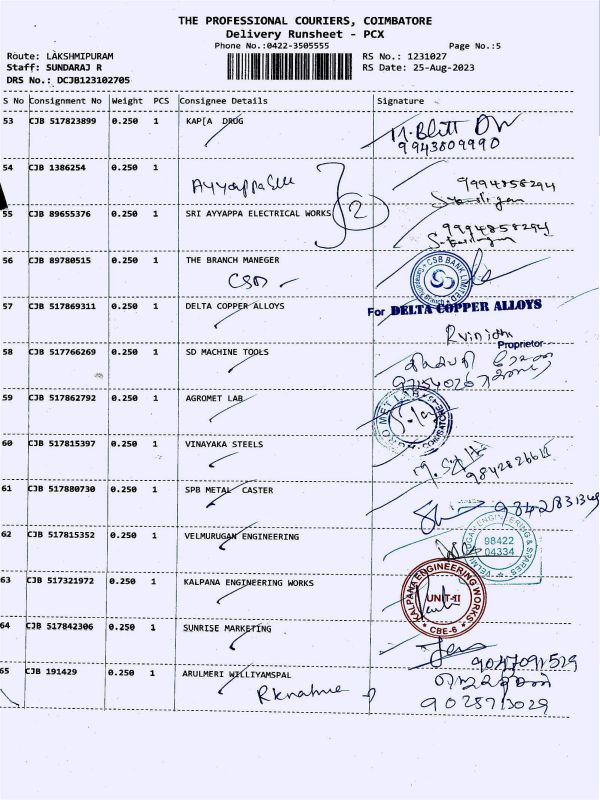 THE PROFESSIONAL COURIERS, COIMBATORE
Delivery Runsheet - PCX
Phone No.:0422-3505555 Page No.:5
Route: LAKSHMIPURAM RS No.: 1231027
Staff: SUNDARAJ R RS Date: 25-Aug-2023
DRS No.: DCJB123102705
S No Consignment No Weight PCS Consignee Details Signature
53 CJB 517823899 0.250 1 KAP[A DRUG
9943809990
54 CJB 1386254 0.250 1
9994858294
55 CJB 89655376 0.250 1 SRI AYYAPPA ELECTRICAL WORKS 2
9994858294
56 CJB 89780515 0.250 1 THE BRANCH MANEGER
CSB BANK
57 CJB 517869311 0.250 1 DELTA COPPER ALLOYS For DELTA COPPER ALLOYS
Proprietor
58 CJB 517766269 0.250 1 SD MACHINE TOOLS
59 CJB 517862792 0.250 1 AGROMET LAB
60 CJB 517815397 0.250 1 VINAYAKA STEELS
61 CJB 517880730 0.250 1 SPB METAL CASTER
62 CJB 517815352 0.250 1 VELMURUGAN ENGINEERING
98422
04334
63 CJB 517321972 0.250 1 KALPANA ENGINEERING WORKS
KALPANA ENGINEERING WORKS
UNIT-II
CBE-6
64 CJB 517842306 0.250 1 SUNRISE MARKETING
9047091529
65 CJB 191429 0.250 1 ARULMERI WILLIYAMSPAL
9025713029